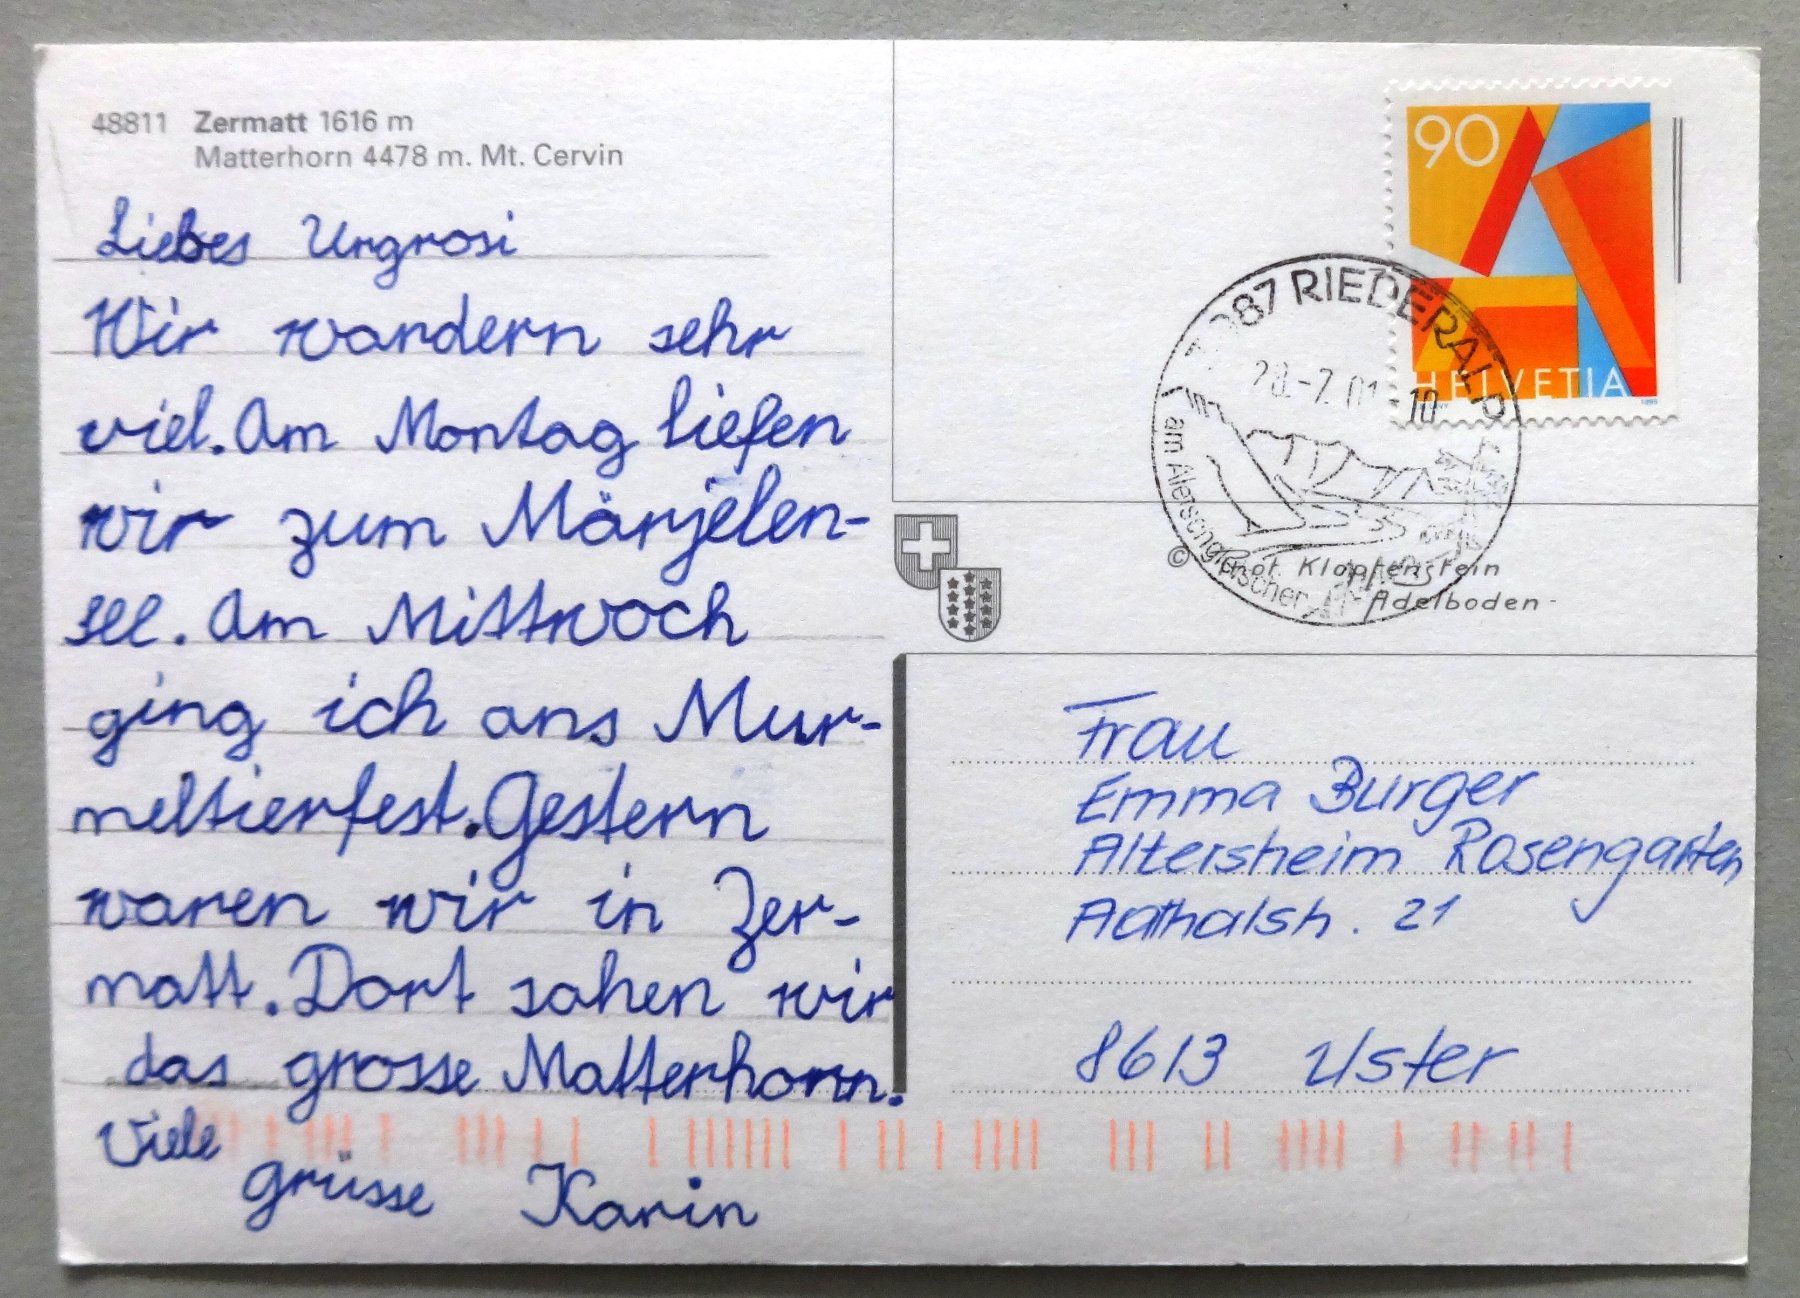 48811 Zermatt 1616 m
Matterhorn 4478 m. Mt. Cervin
Liebes Urgrosi
Wir wandern sehr
viel. Am Montag liefen
wir zum Märjelen-
see. Am Mittwoch
ging ich ans Mur-
meltierfest. Gestern
waren wir in Zer-
matt. Dort sahen wir
das grosse Matterhorn.
Viele
Grüsse Karin
90
HELVETIA
987 RIEDERALP
28.-7.01-10
am Aletschgletscher
© Klopfenstein
Adelboden
Frau
Emma Burger
Altersheim Rosengarten
Aathalstr. 21
8613 Uster